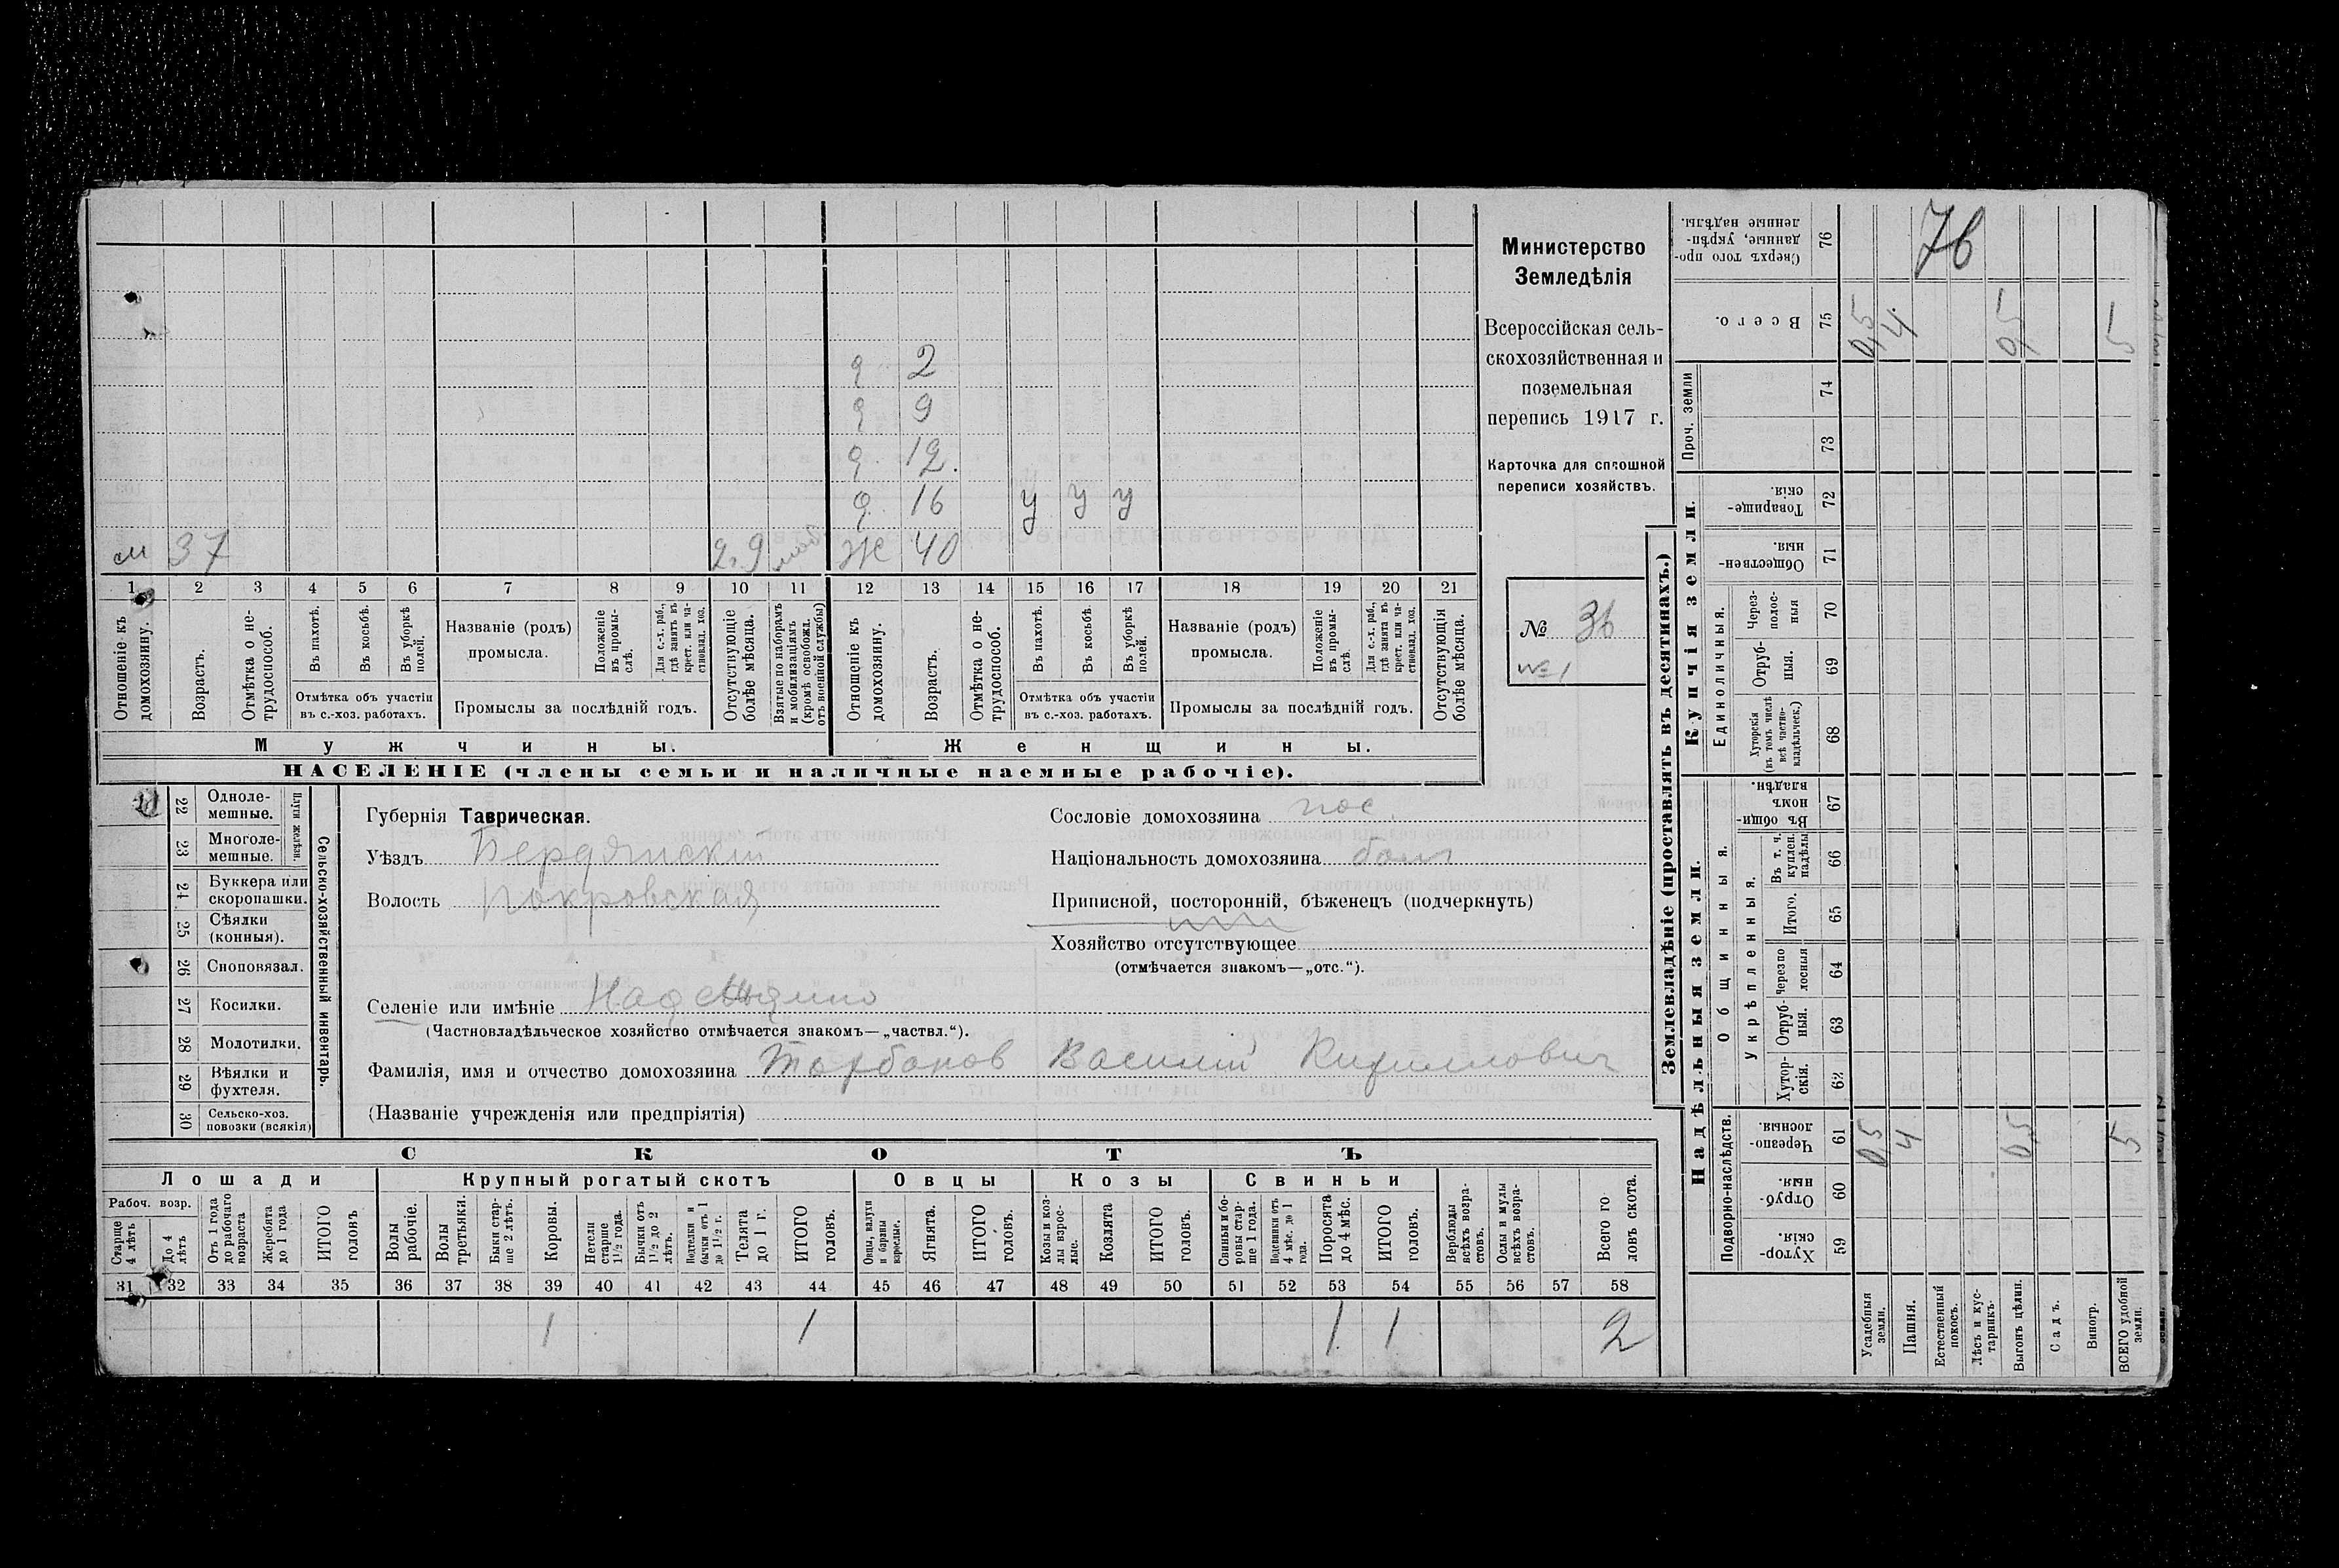 2
9
12.
16 у у у
м 37 2,9 моб Ж 40
1 2 3 4 5 6 7 8 9 10 11 12 13 14 15 16 17 18 19 20 21
Отношеніе къ домохозяину.
Возрастъ.
Отмѣтка о не-
трудоспособ.
Въ пахотѣ.
Въ косьбѣ.
Въ уборкѣ
полей.
Отмѣтка объ участіи
въ с.-хоз. работахъ.
Названіе (родъ)
промысла.
Положеніе
въ промы-
слѣ.
Для с.-х. раб.,
гдѣ занятъ въ
крест. или ча-
стновлад. хоз.
Промыслы за послѣдній годъ.
Отсутствующіе
болѣе мѣсяца.
Взятые по наборамъ
и мобилизаціямъ
(кромѣ освобожд.
отъ военной службы)
Отношеніе къ
домохозяину.
Возрастъ.
Отмѣтка о не-
трудоспособ.
Въ пахотѣ.
Въ косьбѣ.
Въ уборкѣ
полей.
Отмѣтка объ участіи
въ с.-хоз. работахъ.
Названіе (родъ)
промысла.
Положеніе
въ промы-
слѣ.
Для с.-х. раб.,
гдѣ занята въ
крест. или ча-
стновлад. хоз.
Промыслы за послѣдній годъ.
Отсутствующія
болѣе мѣсяца.
Мужчины.
Женщины.
НАСЕЛЕНІЕ (члены семьи и наличные наемные рабочіе).
Министерство
Земледѣлія
Всероссійская сель-
скохозяйственная и
поземельная
перепись 1917 г.
Карточка для сплошной
переписи хозяйствъ.
№ 36
№ 1
22 Одноле-
мешные.
23 Многоле-
мешные.
Плуги желѣзн.
24 Буккера или
скоропашки.
25 Сѣялки
(конныя).
26 Сноповязал.
27 Косилки.
28 Молотилки.
29 Вѣялки и
фухтеля.
30 Сельско-хоз.
повозки (всякія)
Сельско-хозяйственный инвентарь.
Губернія Таврическая.
Уѣздъ Бердянскій
Волость Покровская
Сословіе домохозяина пос.
Національность домохозяина болг
Приписной, посторонній, бѣженецъ (подчеркнуть)
Хозяйство отсутствующее
(отмѣчается знакомъ—„отс.“).
Селеніе или имѣніе
(Частновладѣльческое хозяйство отмѣчается знакомъ—„частвл.“).
Фамилія, имя и отчество домохозяина Тарбаков Василий Кириллович
(Названіе учрежденія или предпріятія)
СКОТЪ
Лошади
Крупный рогатый скотъ
Овцы
Козы
Свиньи
Рабоч. возр.
Старше
4 лѣтъ
До 4
лѣтъ
Отъ 1 года
до рабочаго
возраста
Жеребята
до 1 года
ИТОГО
головъ
Волы
рабочіе.
Волы
третьяки.
Быки стар-
ше 2 лѣтъ.
Коровы.
Нетели
старше
1½ года.
Бычки отъ
1½ до 2
лѣтъ.
Подтелки и
бычки отъ 1
до 1½ г.
Телята
до 1 г.
ИТОГО
головъ.
Овцы, валухи
и бараны
взрослые.
Ягнята.
ИТОГО
головъ.
Козы и коз-
лы взрос-
лые.
Козлята
ИТОГО
головъ.
Свиньи и бо-
ровы стар-
ше 1 года.
Подсвинки отъ
4 мѣс. до 1
года.
Поросята
до 4 мѣс.
ИТОГО
головъ.
Верблюды
всѣхъ возра-
стовъ.
Ослы и мулы
всѣхъ возра-
стовъ.
Всего го
ловъ скота.
31 32 33 34 35 36 37 38 39 40 41 42 43 44 45 46 47 48 49 50 51 52 53 54 55 56 57 58
1 1 1 1 2
Землевладѣніе (проставлять въ десятинахъ.)
Купчія земли.
Надѣльныя земли.
Сверхъ того про-
данные, укрѣп-
ленные надѣлы.
76
76
Всего.
75
0,5 4. 0,5 5
Проч. земли
74
73
Товарище-
скія.
72
Обществен-
ныя.
71
Единоличныя.
Через-
полос-
ныя
70
Отруб-
ныя.
69
Хуторскія
(въ томъ числѣ
всѣ частно-
владѣльческ.)
68
Въ общин-
номъ
владѣн.
67
Общинныя.
Укрѣпленныя.
Въ т. ч.
куплен.
надѣлы
66
Итого.
65
Черезпо
лосныя
64
Отруб-
ныя.
63
Хутор-
скія.
62
Подворно-наслѣдств.
Черезпо-
лосныя.
61
05 4 0,5 5
Отруб-
ныя.
60
Хутор-
скія.
59
Усадебныя
земли.
Пашня.
Естественный
покосъ.
Лѣсъ и кус-
тарникъ.
Выгонъ цѣлин.
Садъ.
Виногр.
ВСЕГО удобной
земли.